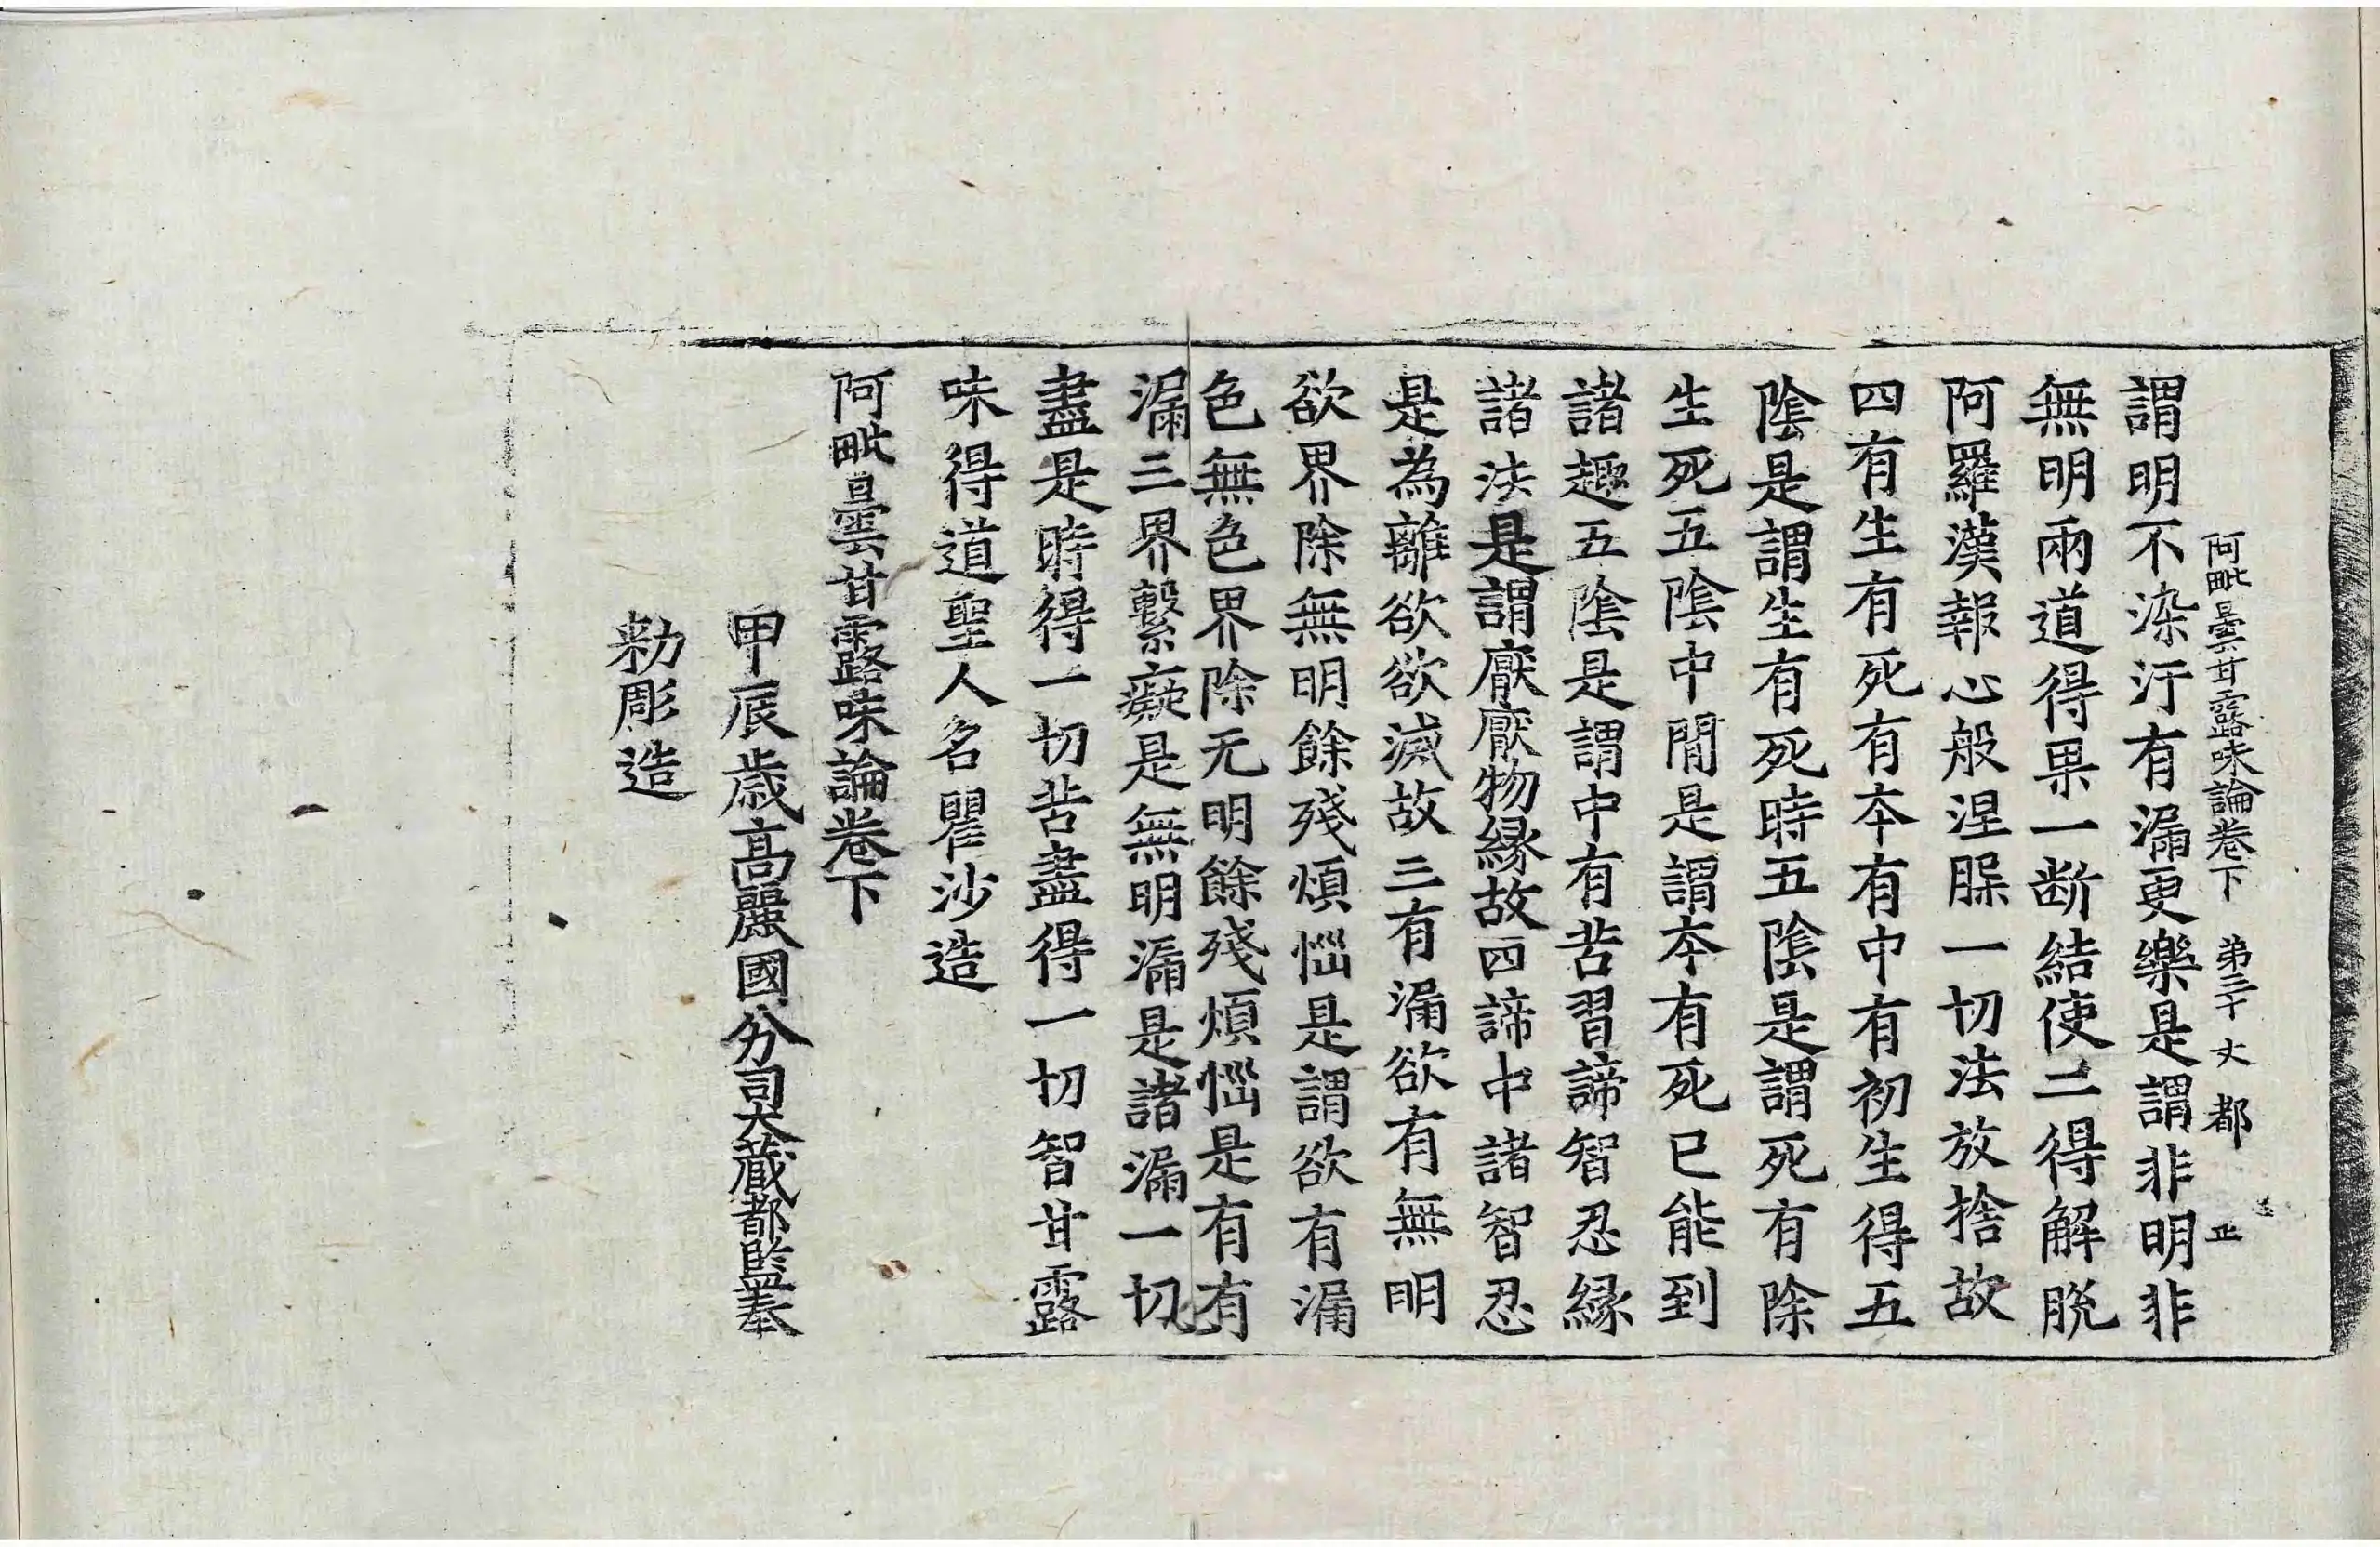 阿毗曇甘露味論卷下 第三十丈 都 正
謂明不染汙有漏更樂是謂非明非
無明兩道得果一断結使二得解脫
阿羅漢報心般涅槃一切法放捨故
四有生有死有本有中有初生得五
陰是謂生有死時五陰是謂死有除
生死五陰中間是謂本有死已能到
諸趣五陰是謂中有苦習諦智忍緣
諸法是謂厭厭物緣故四諦中諸智忍
是為離欲欲滅故三有漏欲有無明
欲界除無明餘殘煩惱是謂欲有漏
色無色界除无明餘殘煩惱是有有
漏三界繫癡是無明漏是諸漏一切
盡是時得一切苦盡得一切智甘露
味得道聖人名瞿沙造
阿毗曇甘露味論卷下
甲辰歲高麗國分司大藏都監奉
勅彫造